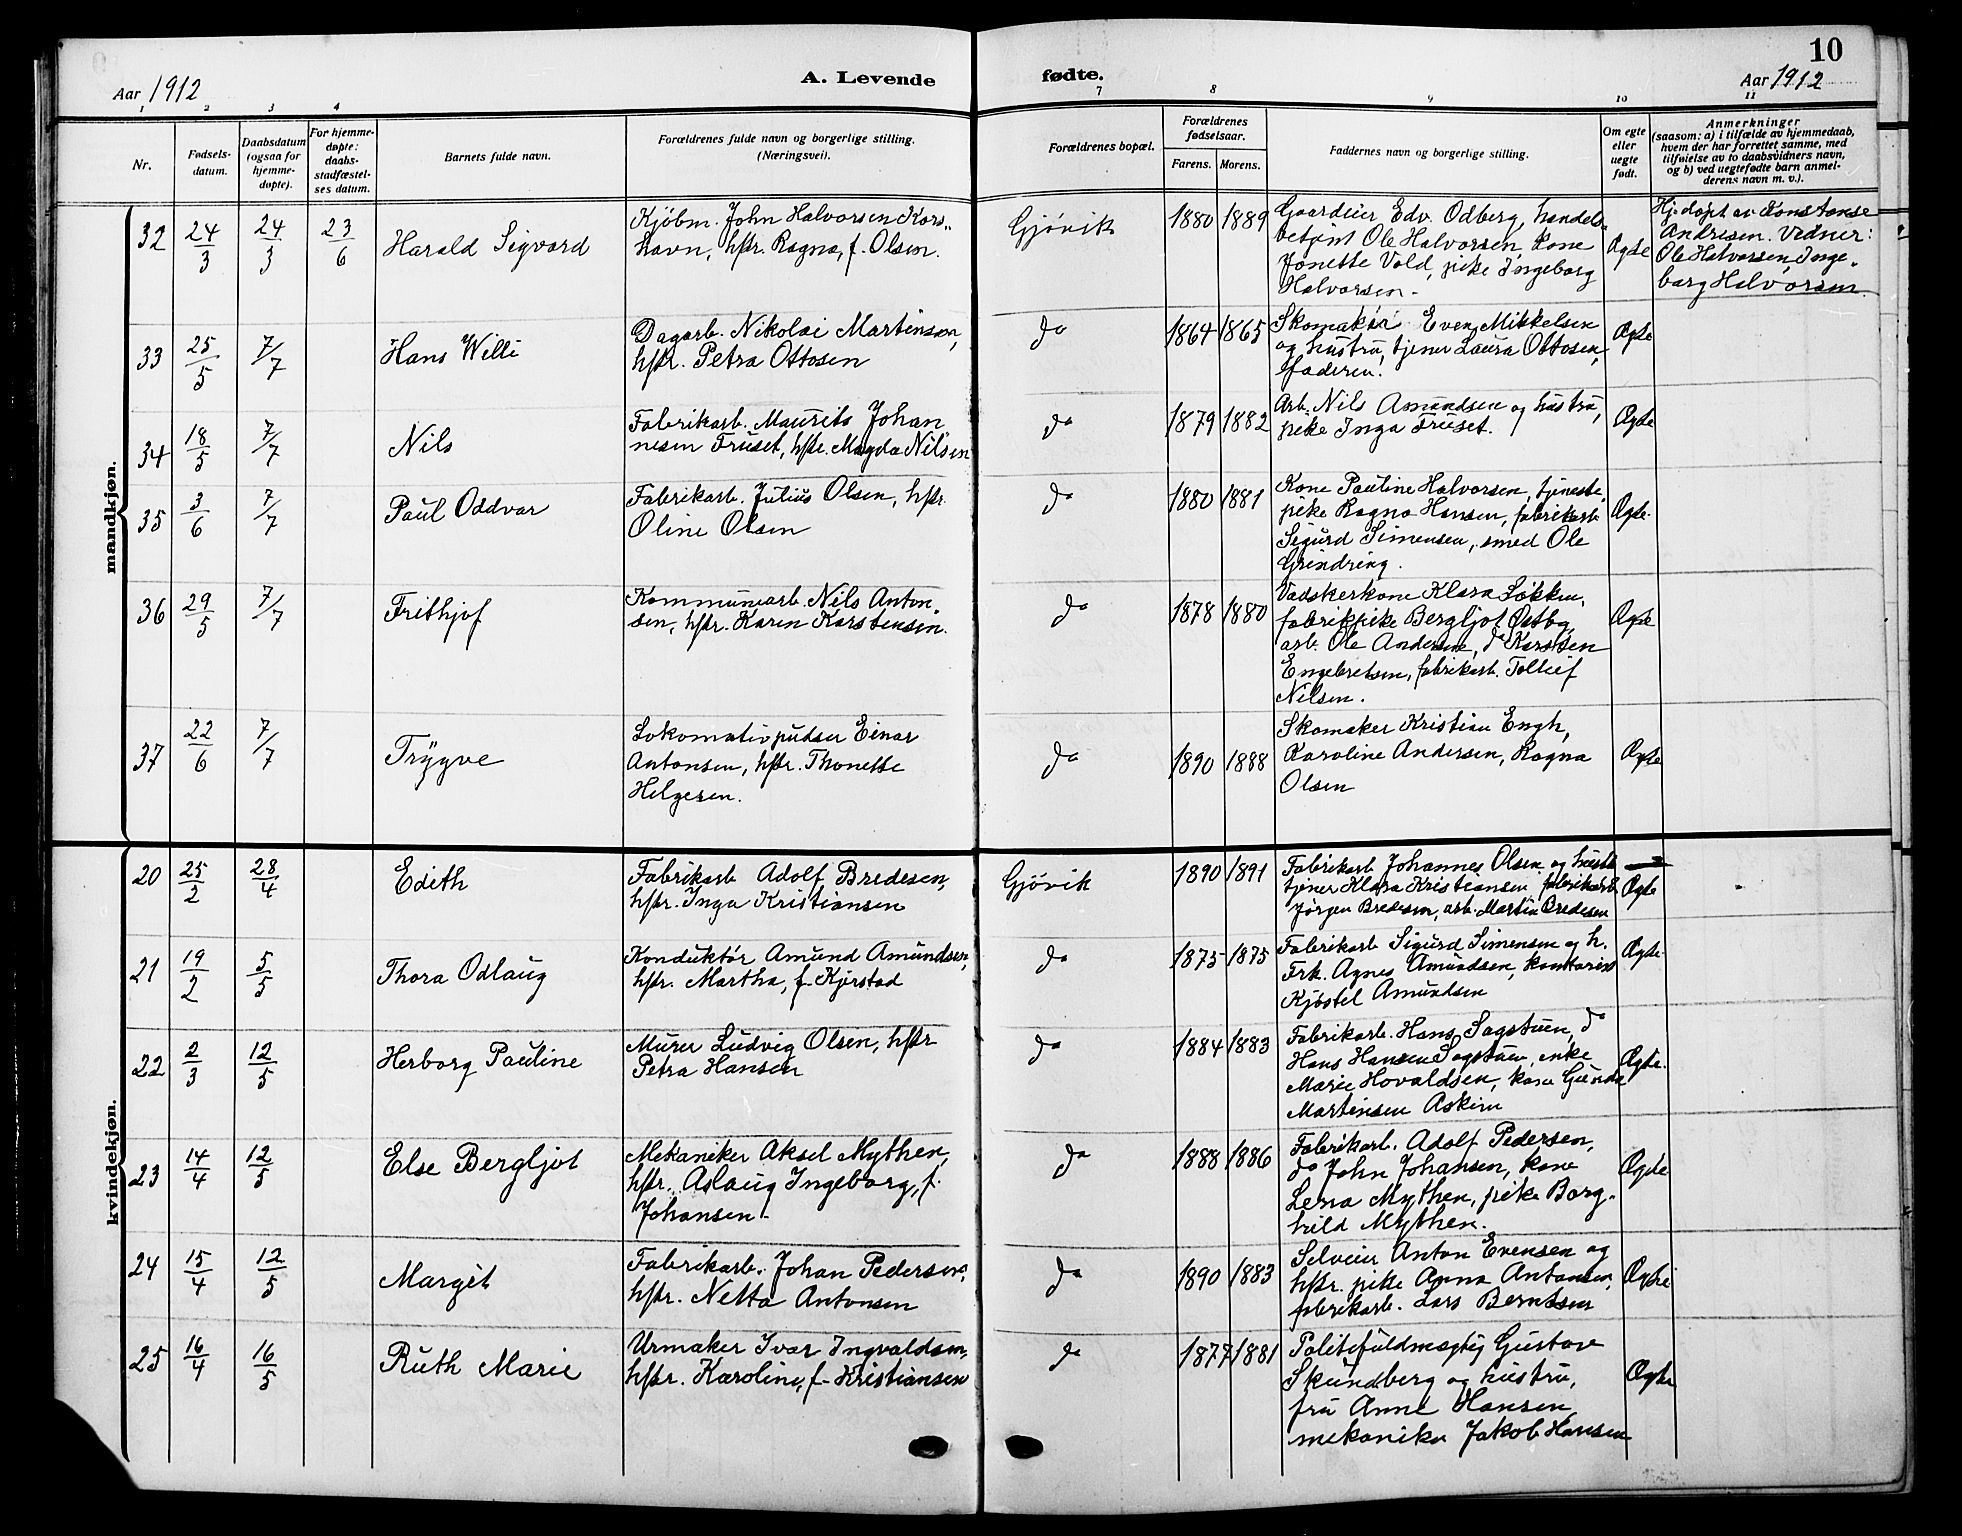 10
Aar 1912
A. Levende
fødte.
Aar 1912
1 2 3 4
7 8 9 10 11
Nr.
Fødsels-
datum.
Daabsdatum
(ogsaa for
hjemme-
døpte).
For hjemme-
døpte:
daabs-
stadfæstel-
ses datum.
Barnets fulde navn.
Forældrenes fulde navn og borgerlige stilling.
(Næringsvei).
Forældrenes bopæl.
Forældrenes
fødselsaar.
Farens. Morens.
Faddernes navn og borgerlige stilling.
Om egte
eller
uegte
født.
Anmerkninger
(saasom: a) i tilfælde av hjemmedaab,
hvem der har forrettet samme, med
tilføielse av to daabsvidners navn,
og b) ved uegtefødte barn anmel-
derens navn m. v.).
mandkjøn.
32 24/3 24/3 23/6 Harald Sigvard
Kjøbm. John Halvorsen Kors-
havn, hstr. Ragna, f. Olsen.
Gjøvik 1880 1889
Gaardeier Edv. Odberg, handels-
betjent Ole Halvorsen, kone
Jonette Vold, pike Ingeborg
Halvorsen.
Ægte
Hj. døpt av Konstanse
Andresen. Vidner:
Ole Halvorsen, Inge-
borg Halvorsen.
33 25/5 7/7 Hans Willi
Dagarb. Nikolai Martinsen,
hstr. Petra Ottosen
do 1864 1865
Skomaker Even Mikkelsen
og hustru, tjener Laura Ottosen,
faderen.
Ægte
34 18/5 7/7 Nils
Fabrikarb. Maurits Johan
nesen Fruset, hstr. Magda Nilsen
do 1879 1882
Arb. Nils Amundsen og hustru,
pike Inga Fruset.
Ægte
35 3/6 7/7 Paul Oddvar
Fabrikarb. Julius Olsen, hstr.
Oline Olsen
do 1880 1881
Kone Pauline Halvorsen, tjeneste
pike Ragna Hansen, fabrikarb
Sigurd Simensen, smed Ole
Grindring.
Ægte
36 29/5 7/7 Frithjof
Kommunearb. Nils Anton-
sen, hstr. Karen Karstensen.
do 1878 1880
Vadskerkone Klara Løkken,
fabrikpike Bergljot Østby,
arb. Ole Andersen, do Karsten
Engebretsen, fabrikarb. Tollef
Nilsen.
Ægte
37 22/6 7/7 Trygve
Lokomotivpudser Einar
Antonsen, hstr. Thonette
Helgesen.
do 1890 1888
Skomaker Kristian Engh,
Karoline Andersen, Ragna
Olsen
Ægte
kvindekjøn.
20 25/2 28/4 Edith
Fabrikarb Adolf Bredesen,
hstr. Inga Kristiansen
Gjøvik 1890 1891
Fabrikarb Johannes Olsen og hustr.
tjener Klara Kristiansen, fabrikarb.
Jørgen Bredesen, arb. Martin Bredesen
Ægte
21 19/2 5/5 Thora Odlaug
Konduktør Amund Amundsen,
hstr. Martha, f. Kjørstad
do 1875 1875
Fabrikarb Sigurd Simensen og h.
Frk. Agnes Amundsen, kontorist
Kjøstel Amundsen
Ægte
22 2/3 12/5 Herborg Pauline
Murer Ludvig Olsen, hstr
Petra Hansen
do 1884 1883
Fabrikarb. Hans Sagstuen, do
Hans Hansen Sagstuen, enke
Marie Hovaldsen, kone Gunda
Martinsen Askim
Ægte.
23 14/4 12/5 Else Bergljot
Mekaniker Aksel Mythen,
hstr. Aslaug Ingeborg, f.
Johansen
do 1888 1886
Fabrikarb. Adolf Pedersen,
do John Johansen, kone
Lena Mythen, pike Borg-
hild Mythen.
Ægte
24 15/4 12/5 Margit
Fabrikarb. Johan Pedersen,
hstr. Netta Antonsen
do 1890 1883
Selveier Anton Evensen og
hstr. pike Anna Antonsen,
fabrikarb. Lars Berntsen
Ægte
25 16/4 16/5 Ruth Marie
Urmaker Ivar Ingvaldsen,
hstr. Karoline, f. Kristiansen
do 1877 1881
Politifuldmægtig Gustave
Skundberg og hustru,
fru Anne Hansen
mekaniker Jakob Hansen
Ægte